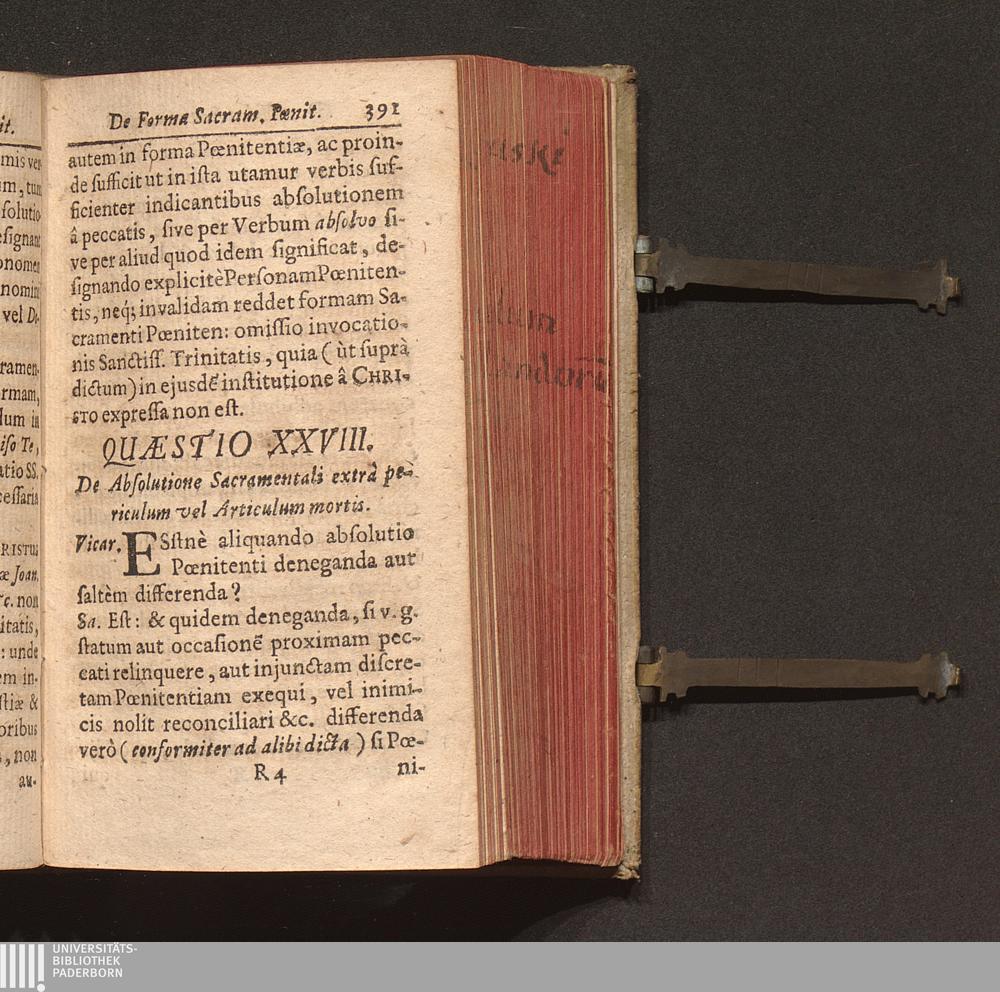 it.
mis ver
um, tum
solutio
esignant
onomen
nomini
vel De
ramen-
rmam,
dum in
iso Te,
atio SS.
cessaria
RISTUS
æ Joan.
&c. non
itatis,
: unde
em in-
stiæ &
oribus
, non
au-
De Forma Sacram. Pœnit. 391
autem in forma Pœnitentiæ, ac proin-
de ſufficit ut in iſta utamur verbis ſuf-
ficienter indicantibus abſolutionem
â peccatis, ſive per Verbum abſolvo ſi-
ve per aliud quod idem ſignificat, de-
ſignando explicitèPerſonamPœniten-
tis, neq; invalidam reddet formam Sa-
cramenti Pœniten: omiſſio invocatio-
nis Sanctiſſ. Trinitatis, quia ( ùt ſuprà
dictum) in ejusdē inſtitutione â CHRI-
STO expreſſa non eſt.
QUÆSTIO XXVIII.
De Abſolutione Sacramentali extrà pe-
riculum vel Articulum mortis.
Vicar. ESſtnè aliquando abſolutio
Pœnitenti deneganda aut
ſaltèm differenda?
Sa. Eſt: & quidem deneganda, ſi v. g.
ſtatum aut occaſionē proximam pec-
cati relinquere, aut injunctam diſcre-
tam Pœnitentiam exequi, vel inimi-
cis nolit reconciliari &c. differenda
verò ( conformiter ad alibi dicta ) ſi Pœ-
R 4 ni-
UNIVERSITÄTS-
BIBLIOTHEK
PADERBORN